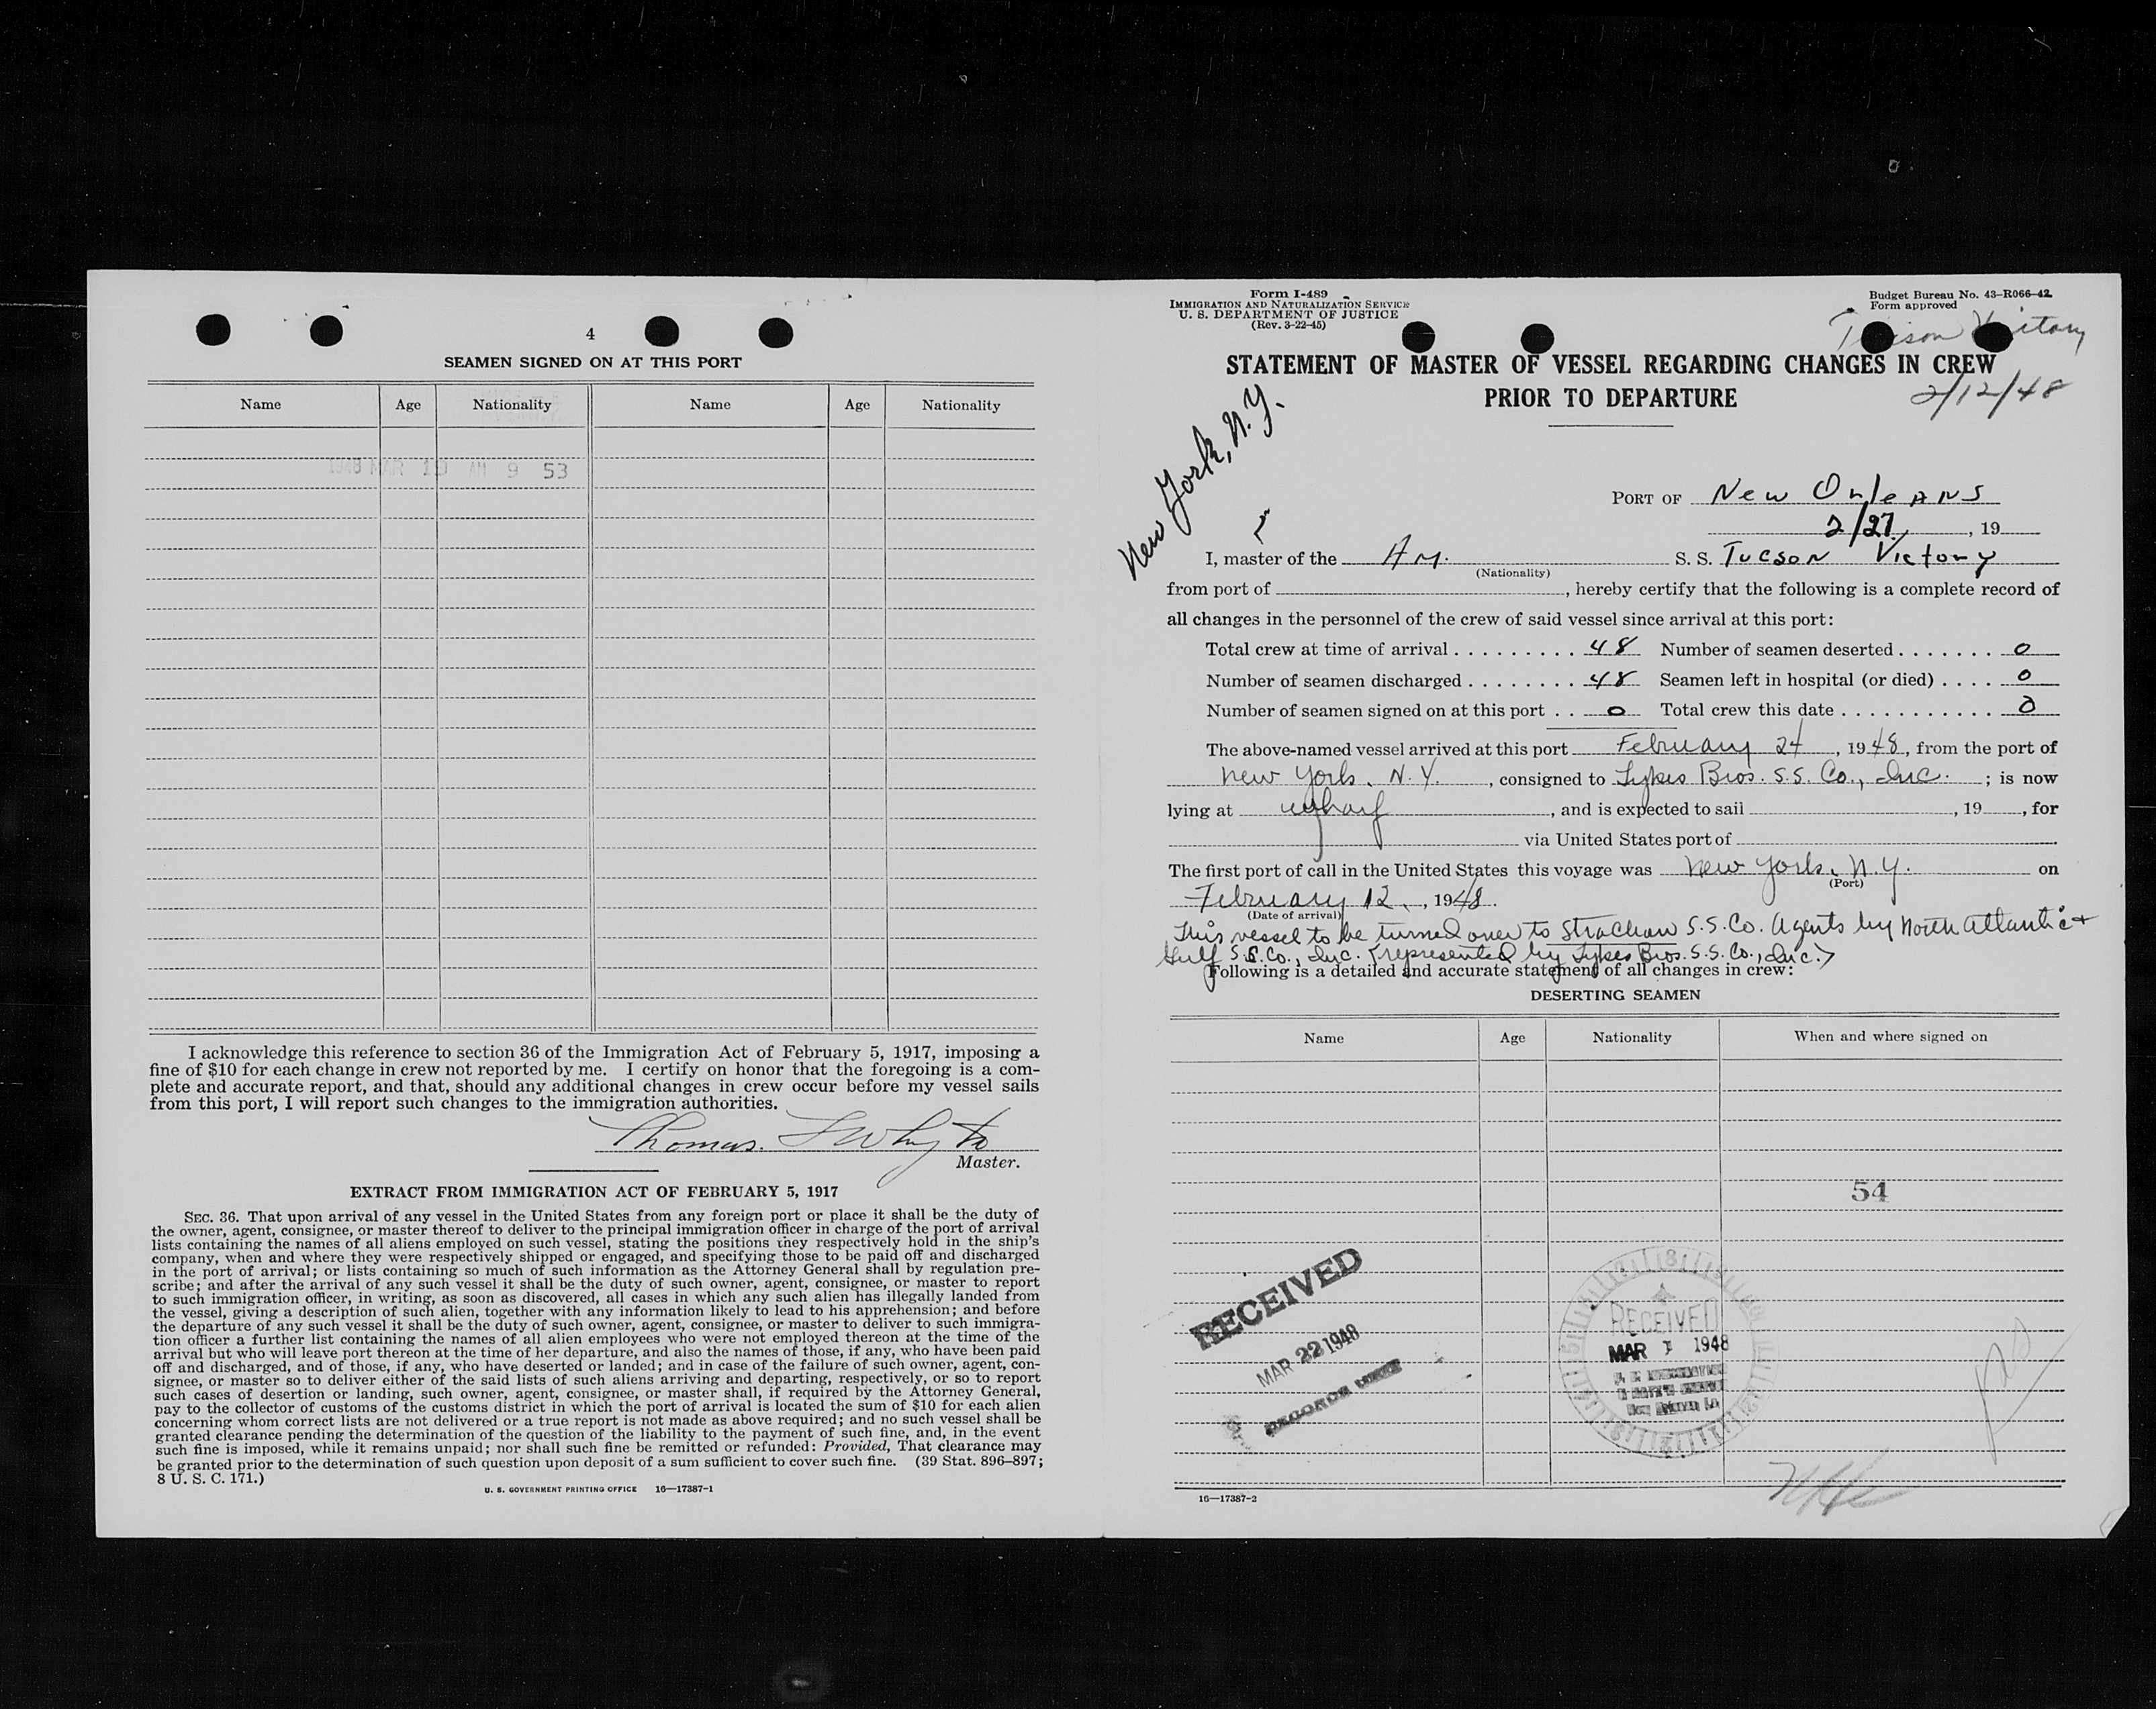 4
SEAMEN SIGNED ON AT THIS PORT
Name Age Nationality Name Age Nationality
1948 MAR 19 AM 9 53
I acknowledge this reference to section 36 of the Immigration Act of February 5, 1917, imposing a
fine of $10 for each change in crew not reported by me. I certify on honor that the foregoing is a com-
plete and accurate report, and that, should any additional changes in crew occur before my vessel sails
from this port, I will report such changes to the immigration authorities.
Thomas
Master.
EXTRACT FROM IMMIGRATION ACT OF FEBRUARY 5, 1917
SEC. 36. That upon arrival of any vessel in the United States from any foreign port or place it shall be the duty of
the owner, agent, consignee, or master thereof to deliver to the principal immigration officer in charge of the port of arrival
lists containing the names of all aliens employed on such vessel, stating the positions they respectively hold in the ship's
company, when and where they were respectively shipped or engaged, and specifying those to be paid off and discharged
in the port of arrival; or lists containing so much of such information as the Attorney General shall by regulation pre-
scribe; and after the arrival of any such vessel it shall be the duty of such owner, agent, consignee, or master to report
to such immigration officer, in writing, as soon as discovered, all cases in which any such alien has illegally landed from
the vessel, giving a description of such alien, together with any information likely to lead to his apprehension; and before
the departure of any such vessel it shall be the duty of such owner, agent, consignee, or master to deliver to such immigra-
tion officer a further list containing the names of all alien employees who were not employed thereon at the time of the
arrival but who will leave port thereon at the time of her departure, and also the names of those, if any, who have been paid
off and discharged, and of those, if any, who have deserted or landed; and in case of the failure of such owner, agent, con-
signee, or master so to deliver either of the said lists of such aliens arriving and departing, respectively, or so to report
such cases of desertion or landing, such owner, agent, consignee, or master shall, if required by the Attorney General,
pay to the collector of customs of the customs district in which the port of arrival is located the sum of $10 for each alien
concerning whom correct lists are not delivered or a true report is not made as above required; and no such vessel shall be
granted clearance pending the determination of the question of the liability to the payment of such fine, and, in the event
such fine is imposed, while it remains unpaid; nor shall such fine be remitted or refunded: Provided, That clearance may
be granted prior to the determination of such question upon deposit of a sum sufficient to cover such fine. (39 Stat. 896–897;
8 U. S. C. 171.)
U. S. GOVERNMENT PRINTING OFFICE 16—17387-1
Form I-489
IMMIGRATION AND NATURALIZATION SERVICE
U. S. DEPARTMENT OF JUSTICE
(Rev. 3-22-45)
Budget Bureau No. 43-R066-42
Form approved
STATEMENT OF MASTER OF VESSEL REGARDING CHANGES IN CREW
PRIOR TO DEPARTURE
2/12/48
New York, N.Y.
PORT OF New Orleans
2/27, , 19
I, master of the Am. S. S. Tucson Victory
(Nationality)
from port of , hereby certify that the following is a complete record of
all changes in the personnel of the crew of said vessel since arrival at this port:
Total crew at time of arrival 48 Number of seamen deserted 0
Number of seamen discharged 48 Seamen left in hospital (or died) 0
Number of seamen signed on at this port 0 Total crew this date 0
The above-named vessel arrived at this port February 24, 1948, from the port of
New York, N.Y. , consigned to Lykes Bros. S.S. Co., Inc. ; is now
lying at wharf , and is expected to sail , 19 , for
via United States port of
The first port of call in the United States this voyage was New York, N.Y. on
(Port)
February 12, , 1948.
(Date of arrival)
This vessel to be turned over to Strachan S.S. Co. Agents by North Atlantic +
Gulf S.S. Co., Inc. (represented by Lykes Bros. S.S. Co., Inc.)
Following is a detailed and accurate statement of all changes in crew:
DESERTING SEAMEN
Name Age Nationality When and where signed on
54
RECEIVED
MAR 22 1948
RECEIVED
MAR 1948
16—17387-2